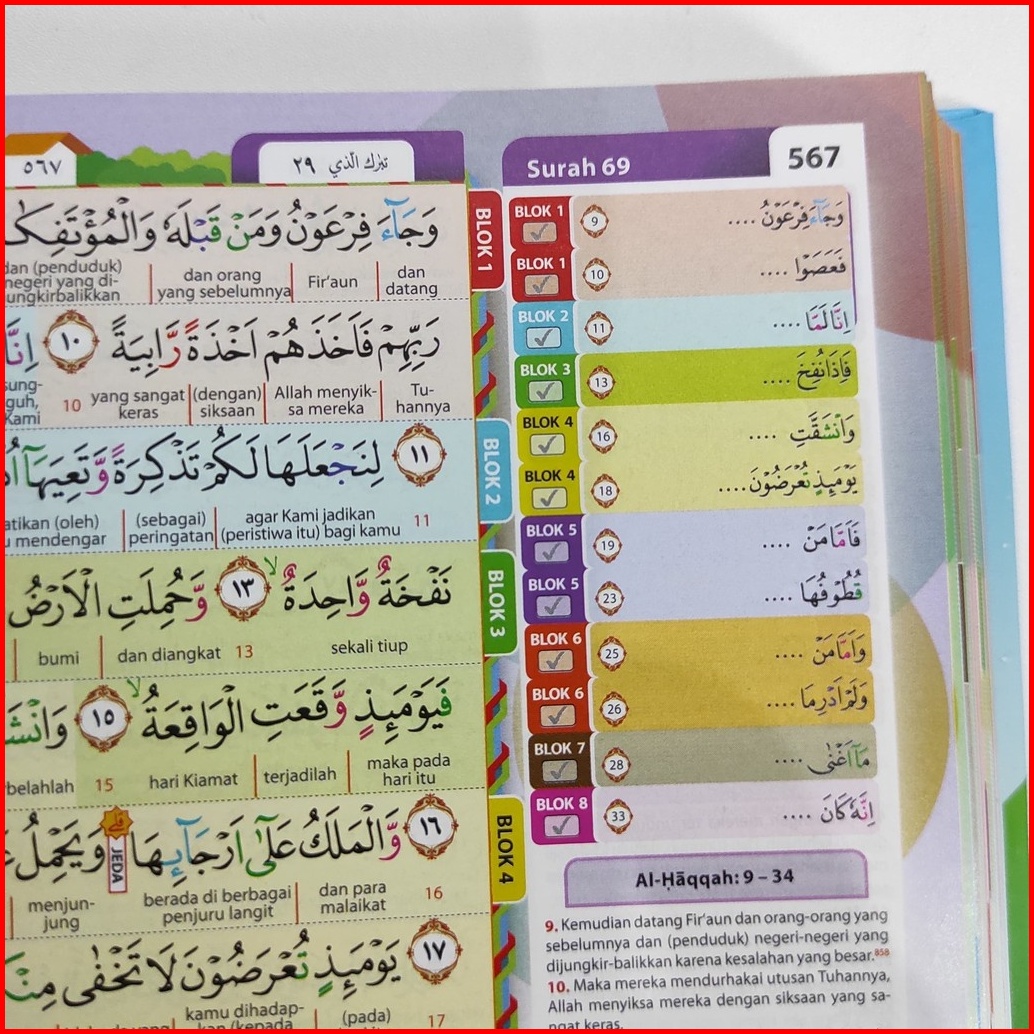 ٥٦٧
تبٰرك الّذي ٢٩
وَجَاۤءَ فِرْعَوْنُ وَمَنْ قَبْلَهٗ وَالْمُؤْتَفِكٰ
dan
datang
Fir'aun
dan orang
yang sebelumnya
dan (penduduk)
negeri yang di-
ungkirbalikkan
رَبِّهِمْ فَاَخَذَهُمْ اَخْذَةً رَّابِيَةً ١٠ اِنَّا
Tu-
hannya
Allah menyik-
sa mereka
(dengan)
siksaan
yang sangat
keras
10
sung-
guh,
Kami
١١ لِنَجْعَلَهَا لَكُمْ تَذْكِرَةً وَّتَعِيَهَآ
11
agar Kami jadikan
(peristiwa itu) bagi kamu
(sebagai)
peringatan
atikan (oleh)
mendengar
نَفْخَةٌ وَّاحِدَةٌ ۙ ١٣ وَّحُمِلَتِ الْاَرْضُ
sekali tiup
13
dan diangkat
bumi
فَيَوْمَىِٕذٍ وَّقَعَتِ الْوَاقِعَةُ ۙ ١٥ وَانْشَ
maka pada
hari itu
terjadilah
hari Kiamat
15
belahlah
١٦ وَّالْمَلَكُ عَلٰٓى اَرْجَاۤىِٕهَا ۗ وَيَحْمِلُ
قلى
JEDA
16
dan para
malaikat
berada di berbagai
penjuru langit
menjun-
jung
١٧ يَوْمَىِٕذٍ تُعْرَضُوْنَ لَا تَخْفٰى مِنْ
17
(pada)
kamu dihadap-
kan (kepada
BLOK 1
BLOK 2
BLOK 3
BLOK 4
Surah 69
567
BLOK 1 9 وَجَاۤءَ فِرْعَوْنُ ....
BLOK 1 10 فَعَصَوْا ....
BLOK 2 11 اِنَّا لَمَّا ....
BLOK 3 13 فَاِذَا نُفِخَ ....
BLOK 4 16 وَانْشَقَّتِ ....
BLOK 4 18 يَوْمَىِٕذٍ تُعْرَضُوْنَ ....
BLOK 5 19 فَاَمَّا مَنْ ....
BLOK 5 23 قُطُوْفُهَا ....
BLOK 6 25 وَاَمَّا مَنْ ....
BLOK 6 26 وَلَمْ اَدْرِ مَا ....
BLOK 7 28 مَآ اَغْنٰى ....
BLOK 8 33 اِنَّهٗ كَانَ ....
Al-Ḥāqqah: 9 – 34
9. Kemudian datang Fir'aun dan orang-orang yang
sebelumnya dan (penduduk) negeri-negeri yang
dijungkir-balikkan karena kesalahan yang besar.⁸⁵⁸
10. Maka mereka mendurhakai utusan Tuhannya,
Allah menyiksa mereka dengan siksaan yang sa-
ngat keras.